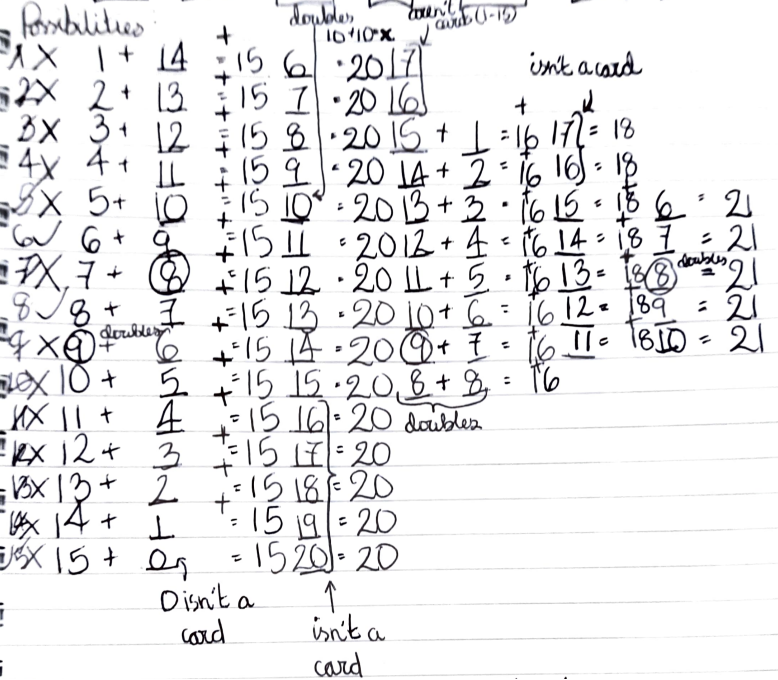 Possibilities:
doubles
doesn't
count (1-15)
+ 10+10=x
isn't a card
1X 1 + 14 = 15 6 = 20 17
2X 2 + 13 = 15 7 = 20 16 +
3X 3 + 12 = 15 8 = 20 15 + 1 = 16 17 = 18
4X 4 + 11 = 15 9 = 20 14 + 2 = 16 16 = 18
5X 5 + 10 = 15 10 = 20 13 + 3 = 16 15 = 18 6 = 21
6✓ 6 + 9 = 15 11 = 20 12 + 4 = 16 14 = 18 7 = 21
7X 7 + 8 = 15 12 = 20 11 + 5 = 16 13 = 18 8 doubles = 21
8✓ 8 + 7 = 15 13 = 20 10 + 6 = 16 12 = 18 9 = 21
9X 9 doubles + 6 = 15 14 = 20 9 + 7 = 16 11 = 18 10 = 21
10X 10 + 5 = 15 15 = 20 8 + 8 = 16
11X 11 + 4 = 15 16 = 20 doubles
12X 12 + 3 = 15 17 = 20
13X 13 + 2 = 15 18 = 20
14X 14 + 1 = 15 19 = 20
15X 15 + 0 = 15 20 = 20
0 isn't a
card
isn't a
card